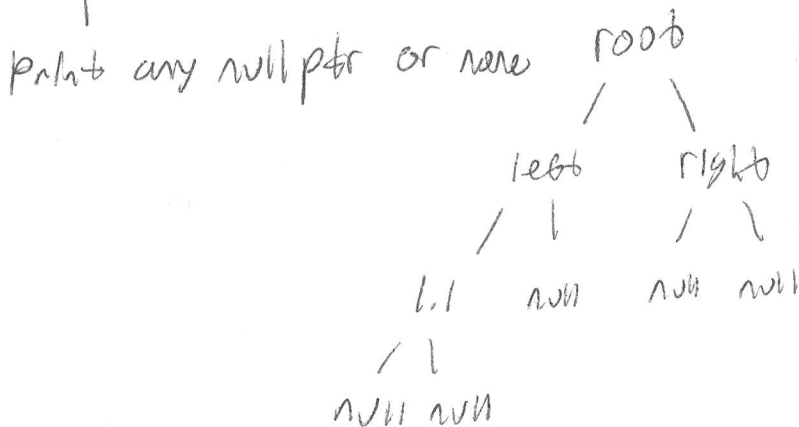 print any nullptr or none
root
left right
l.l null null null
null null